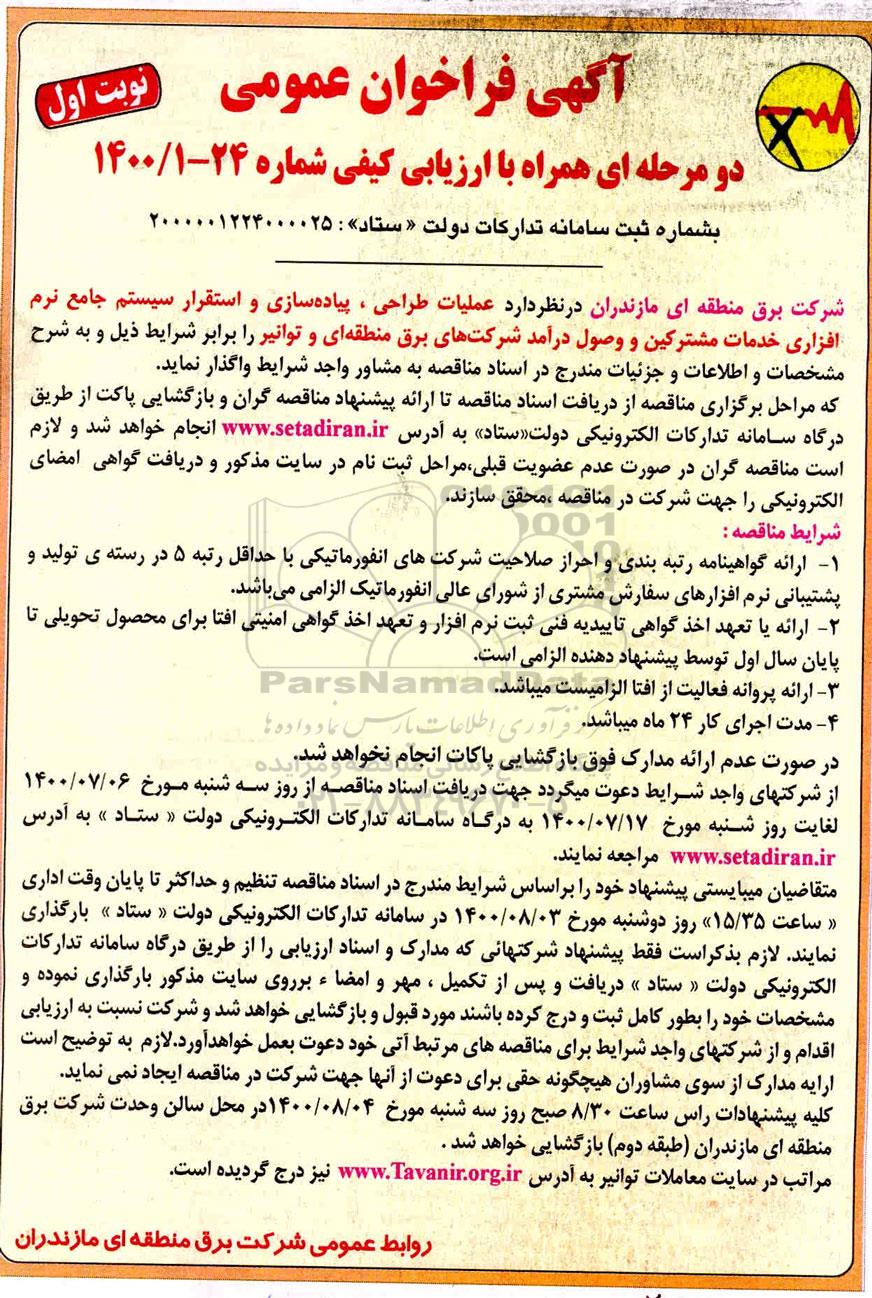 آگهی فراخوان عمومی
نوبت اول
دو مرحله ای همراه با ارزیابی کیفی شماره ۲۴-۱۴۰۰/۱
بشماره ثبت سامانه تدارکات دولت «ستاد»: ۲۰۰۰۰۰۱۲۲۴۰۰۰۰۲۵
شرکت برق منطقه ای مازندران درنظردارد عملیات طراحی ، پیاده‌سازی و استقرار سیستم جامع نرم
افزاری خدمات مشترکین و وصول درآمد شرکت‌های برق منطقه‌ای و توانیر را برابر شرایط ذیل و به شرح
مشخصات و اطلاعات و جزئیات مندرج در اسناد مناقصه به مشاور واجد شرایط واگذار نماید.
که مراحل برگزاری مناقصه از دریافت اسناد مناقصه تا ارائه پیشنهاد مناقصه گران و بازگشایی پاکت از طریق
درگاه سامانه تدارکات الکترونیکی دولت«ستاد» به آدرس www.setadiran.ir انجام خواهد شد و لازم
است مناقصه گران در صورت عدم عضویت قبلی،مراحل ثبت نام در سایت مذکور و دریافت گواهی امضای
الکترونیکی را جهت شرکت در مناقصه ،محقق سازند.
شرایط مناقصه :
۱- ارائه گواهینامه رتبه بندی و احراز صلاحیت شرکت های انفورماتیکی با حداقل رتبه ۵ در رسته ی تولید و
پشتیبانی نرم افزارهای سفارش مشتری از شورای عالی انفورماتیک الزامی می‌باشد.
۲- ارائه یا تعهد اخذ گواهی تاییدیه فنی ثبت نرم افزار و تعهد اخذ گواهی امنیتی افتا برای محصول تحویلی تا
پایان سال اول توسط پیشنهاد دهنده الزامی است.
ParsNamadData
۳- ارائه پروانه فعالیت از افتا الزامیست میباشد.
مرکز فرآوری اطلاعات پارس نماد داده ها
۴- مدت اجرای کار ۲۴ ماه میباشد.
در صورت عدم ارائه مدارک فوق بازگشایی پاکات انجام نخواهد شد.
از شرکتهای واجد شرایط دعوت میگردد جهت دریافت اسناد مناقصه از روز سه شنبه مورخ ۱۴۰۰/۰۷/۰۶
۰۲۱-۸۸۳۴۹۶۷۰-۵
لغایت روز شنبه مورخ ۱۴۰۰/۰۷/۱۷ به درگاه سامانه تدارکات الکترونیکی دولت « ستاد » به آدرس
www.setadiran.ir مراجعه نمایند.
متقاضیان میبایستی پیشنهاد خود را براساس شرایط مندرج در اسناد مناقصه تنظیم و حداکثر تا پایان وقت اداری
« ساعت ۱۵/۳۵» روز دوشنبه مورخ ۱۴۰۰/۰۸/۰۳ در سامانه تدارکات الکترونیکی دولت « ستاد » بارگذاری
نمایند. لازم بذکراست فقط پیشنهاد شرکتهائی که مدارک و اسناد ارزیابی را از طریق درگاه سامانه تدارکات
الکترونیکی دولت « ستاد » دریافت و پس از تکمیل ، مهر و امضا ء برروی سایت مذکور بارگذاری نموده و
مشخصات خود را بطور کامل ثبت و درج کرده باشند مورد قبول و بازگشایی خواهد شد و شرکت نسبت به ارزیابی
اقدام و از شرکتهای واجد شرایط برای مناقصه های مرتبط آتی خود دعوت بعمل خواهدآورد.لازم به توضیح است
ارایه مدارک از سوی مشاوران هیچگونه حقی برای دعوت از آنها جهت شرکت در مناقصه ایجاد نمی نماید.
کلیه پیشنهادات راس ساعت ۸/۳۰ صبح روز سه شنبه مورخ ۱۴۰۰/۰۸/۰۴در محل سالن وحدت شرکت برق
منطقه ای مازندران (طبقه دوم) بازگشایی خواهد شد .
مراتب در سایت معاملات توانیر به آدرس www.Tavanir.org.ir نیز درج گردیده است.
روابط عمومی شرکت برق منطقه ای مازندران